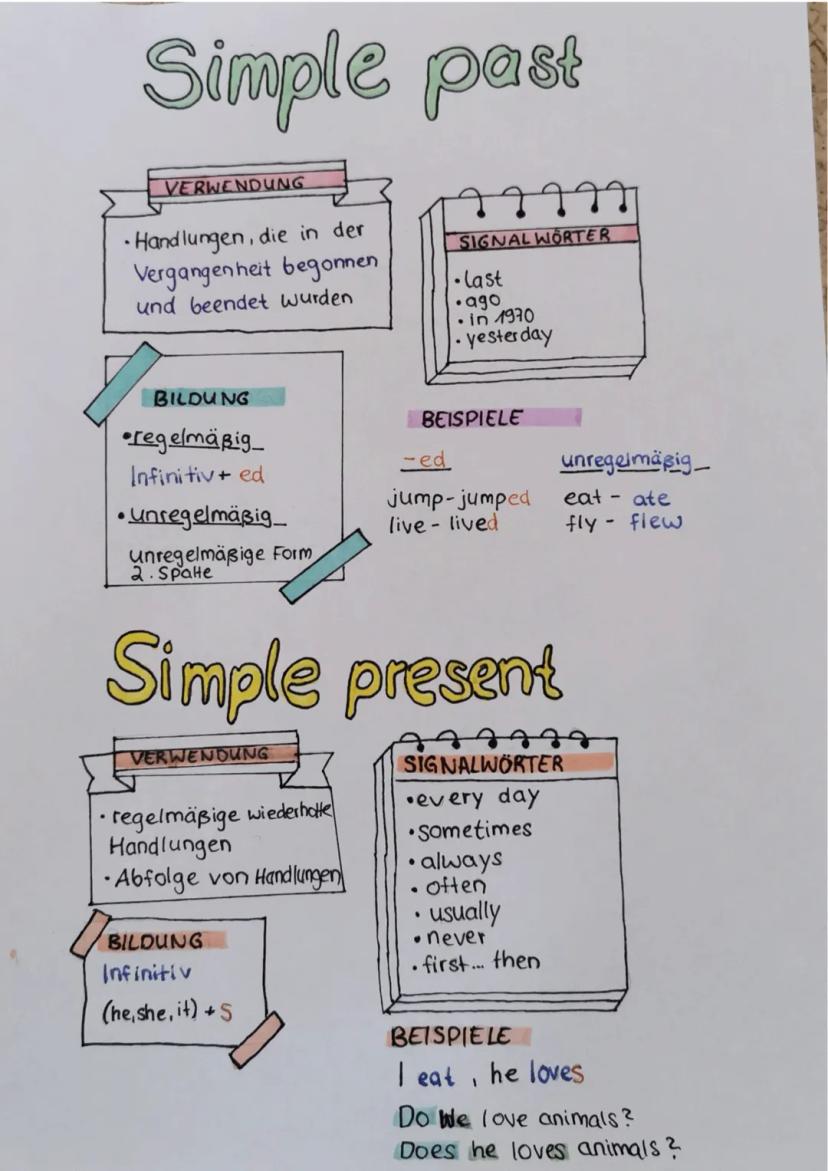 Simple past
VERWENDUNG
• Handlungen, die in der
Vergangenheit begonnen
und beendet wurden
SIGNALWÖRTER
• last
• ago
• in 1970
• yesterday
BILDUNG
• regelmäßig
Infinitiv + ed
• unregelmäßig
unregelmäßige Form
2. Spalte
BEISPIELE
-ed
jump - jumped
live - lived
unregelmäßig
eat - ate
fly - flew
Simple present
VERWENDUNG
• regelmäßige wiederholte
Handlungen
• Abfolge von Handlungen
SIGNALWÖRTER
• every day
• sometimes
• always
• often
• usually
• never
• first... then
BILDUNG
Infinitiv
(he, she, it) + S
BEISPIELE
I eat, he loves
Do we love animals?
Does he loves animals?